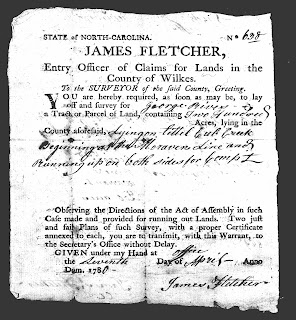 STATE of NORTH-CAROLINA. No 638
JAMES FLETCHER,
Entry Officer of Claims for Lands in the
County of Wilkes.
To the SURVEYOR of the said County, Greeting.
YOU are hereby required, as soon as may be, to lay
off and survey for George
a Tract or Parcel of Land, containing Two Hundred
Acres, lying in the
County aforesaid, Lying on Creek
Beginning at Line and
Running up on both sides for
Observing the Directions of the Act of Assembly in such
Case made and provided for running out Lands. Two just
and fair Plans of such Survey, with a proper Certificate
annexed to each, you are to transmit, with this Warrant, to
the Secretary's Office without Delay.
GIVEN under my Hand at office
the Seventh Day of Anno
Dom. 178
James Fletcher